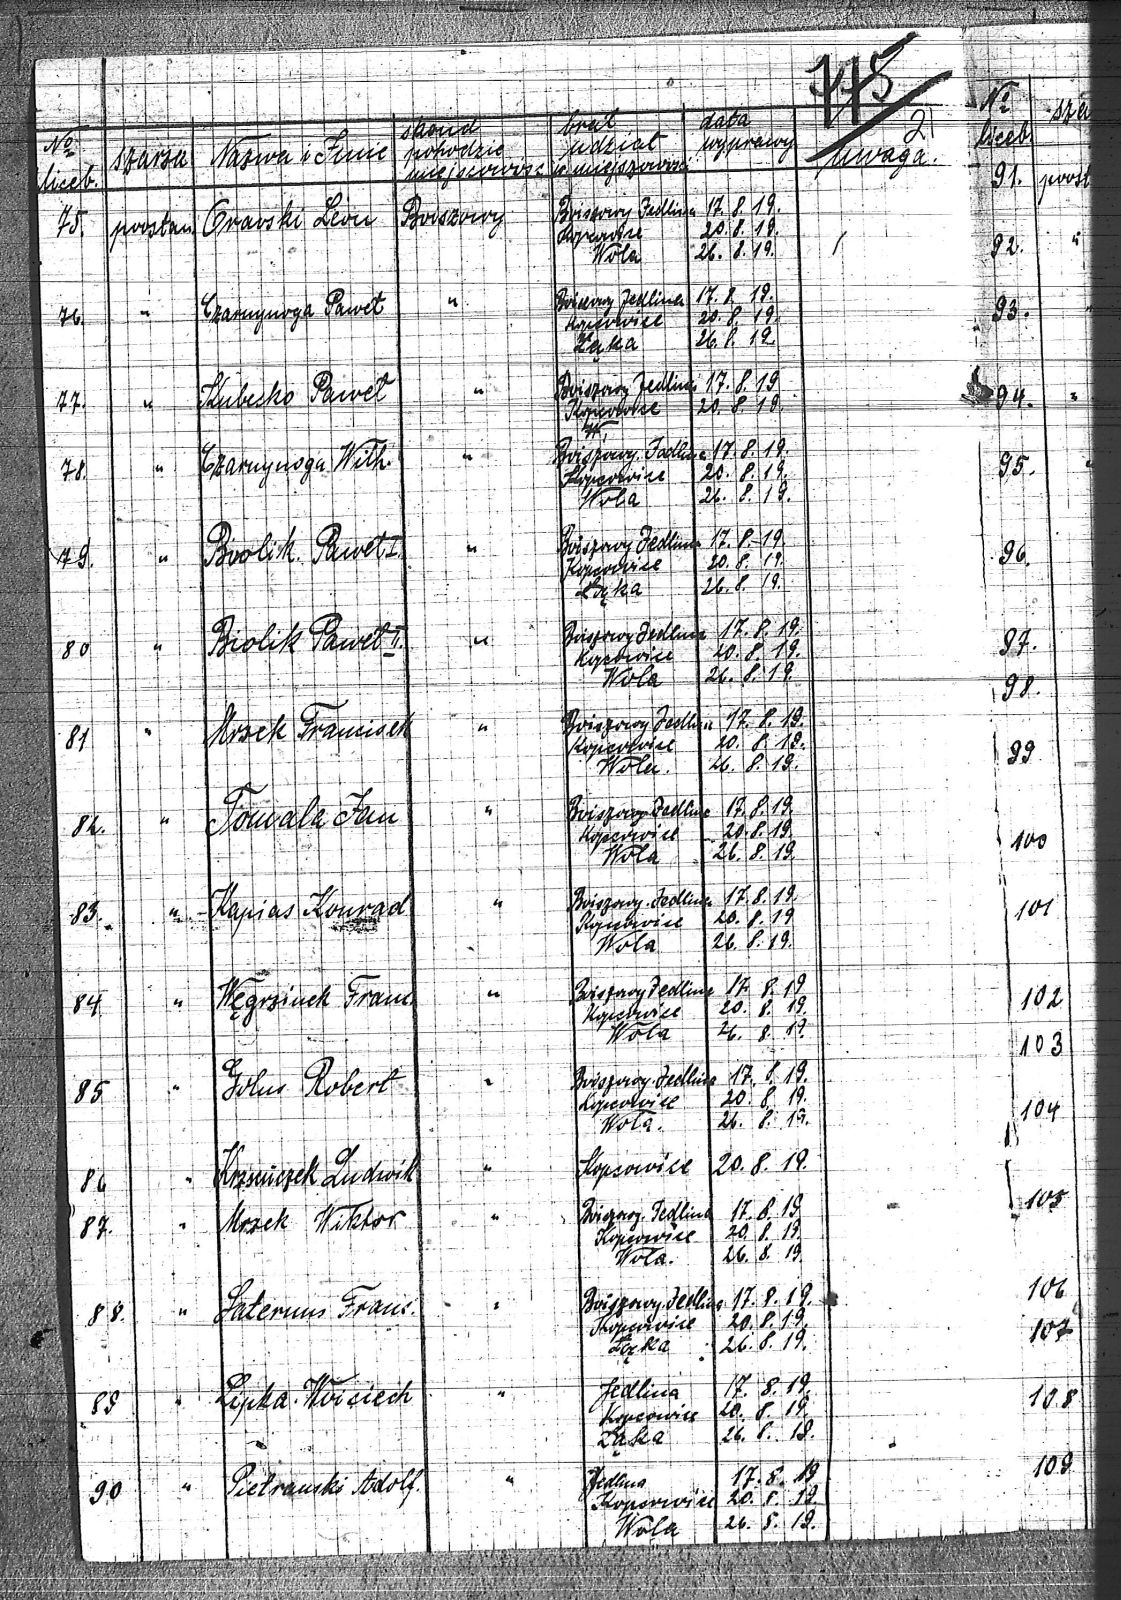 21
No liceb. szarza Nazwa i Imie skond pohodzie miejscowosc brał udział w miejszowości data wyprawy uwaga.
75. powstan. Oravski Leon Boiszowy Boiszowy Jedlina 17. 8. 19.
Kopcowice 20. 8. 19.
Wola 26. 8. 19.
76. " Czarnynoga Paweł " Boiszowy Jedlina 17. 8. 19.
Kopcowice 20. 8. 19.
Łąka 26. 8. 19.
77. " Kubesko Paweł " Boiszowy Jedlina 17. 8. 19
Kopcowice 20. 8. 19.
W.
78. " Czarnynoga Wilh. " Boiszowy. Jedlina 17. 8. 19.
Kopcowice 20. 8. 19.
Wola 26. 8. 19.
79. " Biolik. Paweł I. " Boiszowy Jedlina 17. 8. 19.
Kopcowice 20. 8. 19.
Łąka 26. 8. 19.
80 " Biolik Paweł II. " Boiszowy Jedlina 17. 8. 19.
Kopcowice 20. 8. 19.
Wola 26. 8. 19.
81 " Mrzek Francisek " Boiszowy Jedlina 17. 8. 19.
Kopcowice 20. 8. 19.
Wola. 26. 8. 19.
82. " Tomala Jan " Boiszowy Jedlina 17. 8. 19.
Kopcowice 20. 8. 19.
Wola 26. 8. 19.
83. " Kapias Konrad " Boiszowy. Jedlina 17. 8. 19.
Kopcowice 20. 8. 19
Wola 26. 8. 19.
84 " Węgrzinek Franc. " Boiszowy Jedlina 17. 8. 19
Kopcowice 20. 8. 19.
Wola 26. 8. 19.
85 " Golus Robert " Boiszowy. Jedlina 17. 8. 19.
Kopcowice 20. 8. 19.
Wola. 26. 8. 19.
86 " Ludwik " Kopcowice 20. 8. 19.
87. " Mrzek Wiktor " Boiszowy. Jedlina 17. 8. 19
Kopcowice 20. 8. 19.
Wola. 26. 8. 19.
88. " Laterus Franc. " Boiszowy. Jedlina 17. 8. 19.
Kopcowice 20. 8. 19.
Łąka 26. 8. 19.
89 " Lipka. Woiciech " Jedlina 17. 8. 19.
Kopcowice 20. 8. 19.
Łąka 26. 8. 19.
90 " Pietranski Adolf. " Jedlina 17. 8. 19
Kopcowice 20. 8. 19.
Wola 26. 8. 19.
No liceb. sza
91. powst
92. "
93.
94. "
95.
96.
97.
98.
99
100
101
102
103
104
105
106
107
108
109